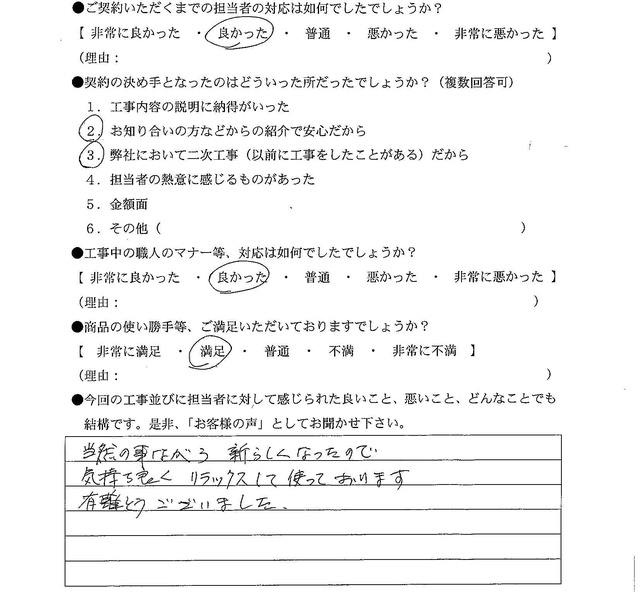 ●ご契約いただくまでの担当者の対応は如何でしたでしょうか？
【 非常に良かった ・ 良かった ・ 普通 ・ 悪かった ・ 非常に悪かった 】
（理由： ）
●契約の決め手となったのはどういった所だったでしょうか？（複数回答可）
１．工事内容の説明に納得がいった
２．お知り合いの方などからの紹介で安心だから
３．弊社において二次工事（以前に工事をしたことがある）だから
４．担当者の熱意に感じるものがあった
５．金額面
６．その他（ ）
●工事中の職人のマナー等、対応は如何でしたでしょうか？
【 非常に良かった ・ 良かった ・ 普通 ・ 悪かった ・ 非常に悪かった 】
（理由： ）
●商品の使い勝手等、ご満足いただいておりますでしょうか？
【 非常に満足 ・ 満足 ・ 普通 ・ 不満 ・ 非常に不満 】
（理由： ）
●今回の工事並びに担当者に対して感じられた良いこと、悪いこと、どんなことでも
結構です。是非、「お客様の声」としてお聞かせ下さい。
当然の事ながら 新らしくなったので
気持ち良く リラックスして使っております
有難とうございました.